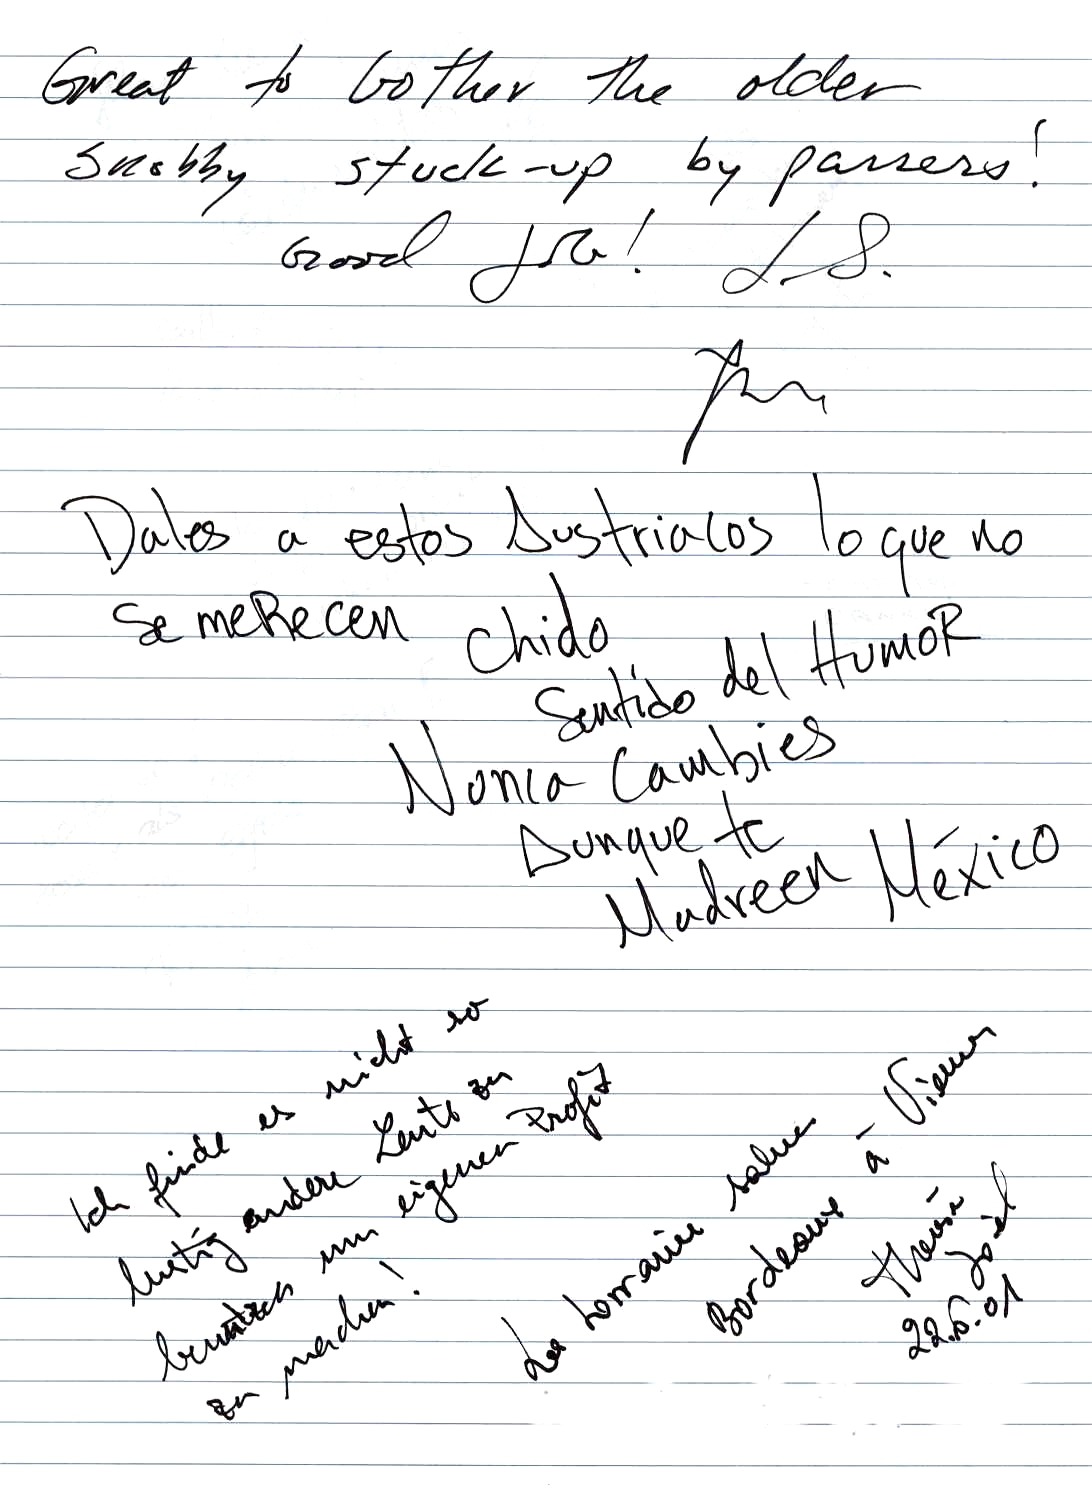 Great to bother the older
snobby stuck-up by passers!
Good Job! L.S.
Dales a estos Austriacos lo que no
se meRecen Chido
Sentido del HumoR
Nunca Cambies
Aunque te
Madreen México
Ich finde es nicht so
lustig andere Leute zu
benützen um eigenen Profit
zu machen!
La Lorraine salue
Bordeaux à Vienne
Joël
22.6.01